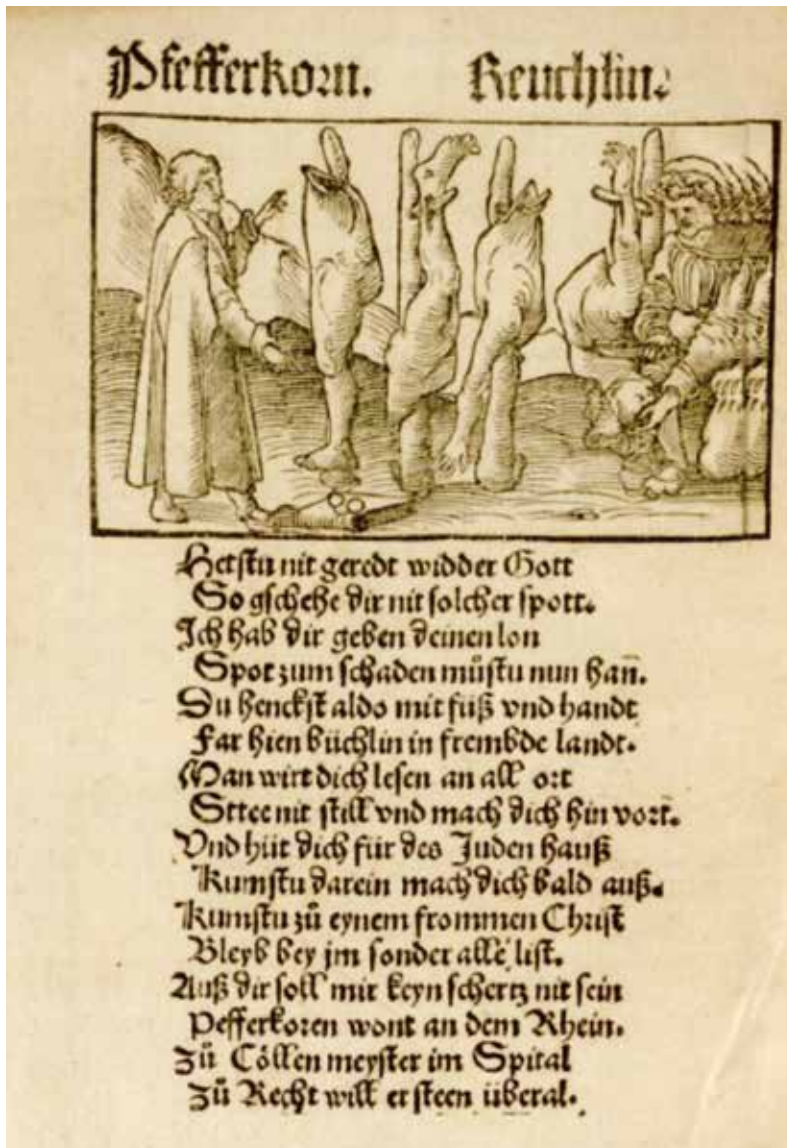 Pfefferkorn. Reuchlin.
Hetstu nit geredt widder Gott
So gschehe dir nit solcher spott.
Ich hab dir geben deinen lon
Spot zum schaden můstu nun han̄.
Du henckst aldo mit füß vnd handt
Far hien büchlin in frembde landt.
Man wirt dich lesen an all ort
Sttee nit still vnd mach dich hin vort.
Vnd hüt dich für des Juden hauß
Kumstu darein mach dich bald auß.
Kumstu zů eynem frommen Christ
Bleyb bey jm sonder alle list.
Auß dir soll mir keyn schertz nit sein
Pefferkoren wont an dem Rhein.
Zů Cöllen meyster im Spital
Zů Recht will er steen überal.